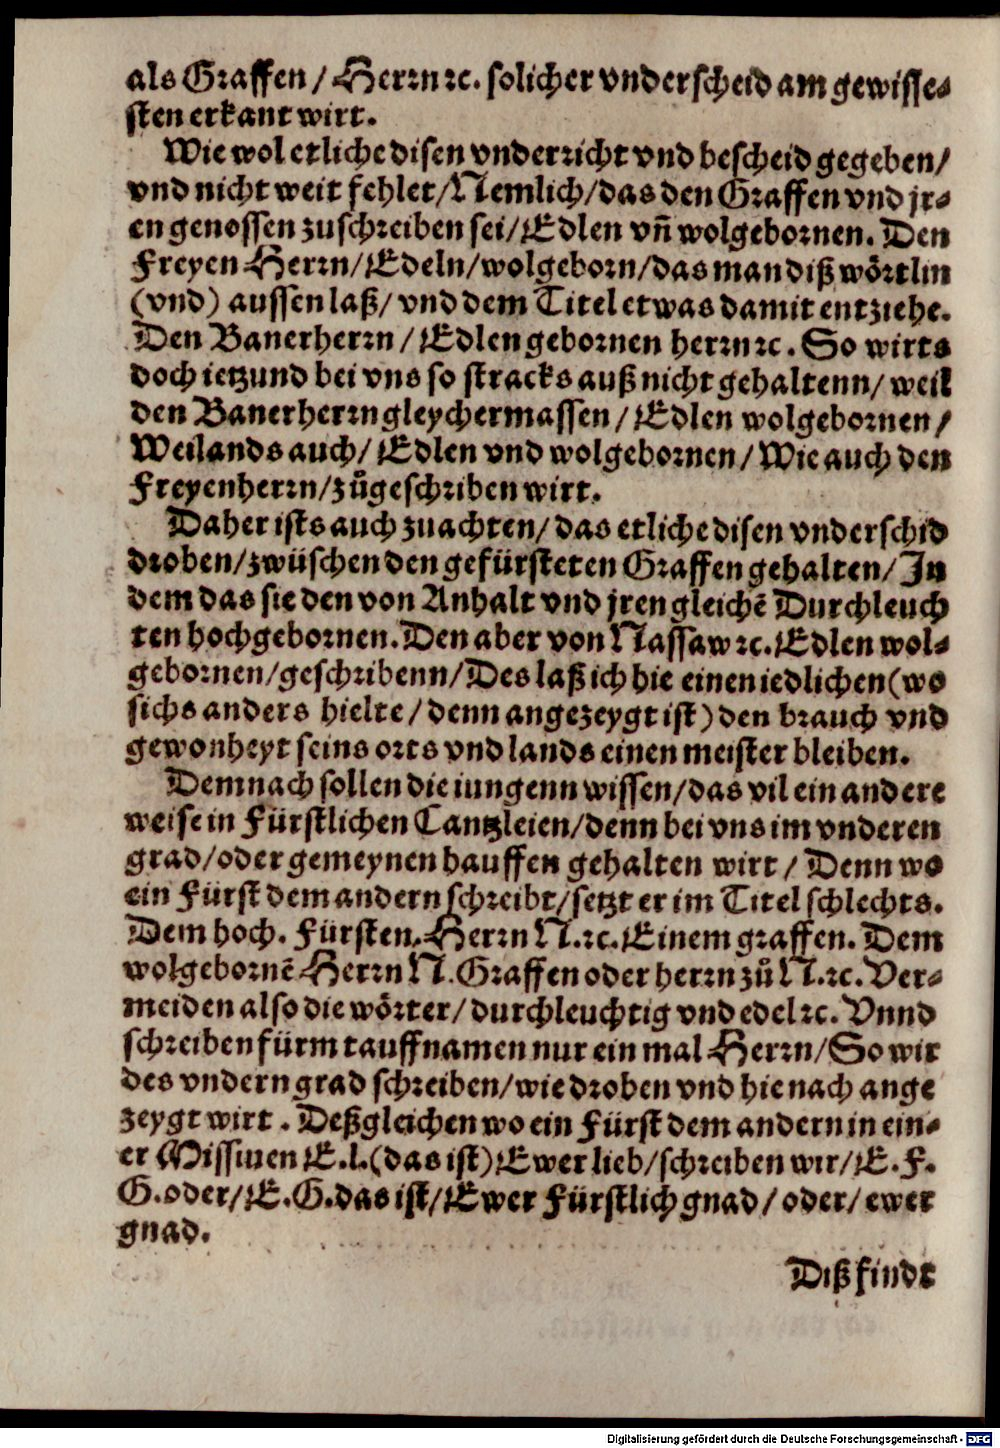 als Graffen / Herrn ꝛc. solicher vnderscheid am gewisse⸗
sten erkant wirt.
Wie wol etliche disen vnderricht vnd bescheid gegeben /
vnd nicht weit fehlet / Nemlich / das den Graffen vnd jr⸗
en genossen zuschreiben sei / Edlen vñ wolgebornen. Den
Freyen Herrn / Edeln / wolgeborn / das man diß wörtlin
(vnd) aussen laß / vnd dem Titel etwas damit entziehe.
Den Banerherrn / Edlen gebornen herrn ꝛc. So wirts
doch ietzund bei vns so stracks auß nicht gehaltenn / weil
den Banerherrn gleychermassen / Edlen wolgebornen /
Weilands auch / Edlen vnd wolgebornen / Wie auch den
Freyenherrn / zůgeschriben wirt.
Daher ists auch zuachten / das etliche disen vnderschid
droben / zwüschen den gefürsteten Graffen gehalten / In
dem das sie den von Anhalt vnd jren gleichẽ Durchleuch
ten hochgebornen. Den aber von Nassaw ꝛc. Edlen wol⸗
gebornen / geschribenn / Des laß ich hie einen iedlichen (wo
sichs anders hielte / denn angezeygt ist) den brauch vnd
gewonheyt seins orts vnd lands einen meister bleiben.
Demnach sollen die iungenn wissen / das vil ein andere
weise in Fürstlichen Cantzleien / denn bei vns im vnderen
grad / oder gemeynen hauffen gehalten wirt / Denn wo
ein Fürst dem andern schreibt / setzt er im Titel schlechts.
Dem hoch. Fürsten. Herrn N. ꝛc. Einem graffen. Dem
wolgebornẽ Herrn N. Graffen oder herrn zů N. ꝛc. Ver⸗
meiden also die wörter / durchleuchtig vnd edel ꝛc. Vnnd
schreiben fürm tauffnamen nur ein mal Herrn / So wir
des vndern grad schreiben / wie droben vnd hie nach ange
zeygt wirt. Deßgleichen wo ein Fürst dem andern in ein⸗
er Missiuen E. l. (das ist) Ewer lieb / schreiben wir / E. F.
G. oder / E. G. das ist / Ewer Fürstlich gnad / oder / ewer
gnad.
Diß findt
Digitalisierung gefördert durch die Deutsche Forschungsgemeinschaft - DFG